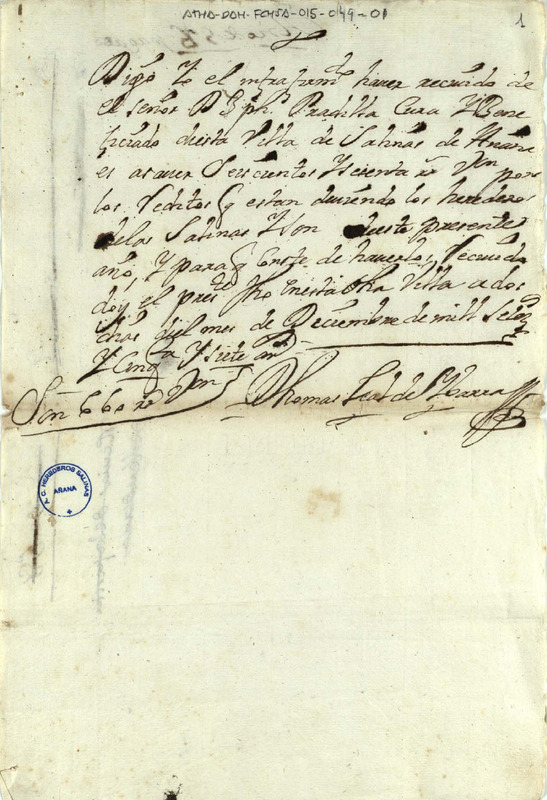 ATHA-DAH-FCHSA-015-049-01
1
Digo Yo el infrafirm.do haver recivido de
el señor D.n Jph. Pradilla Cura Y Bene
ficiado desta Villa de Salinas de Añana
es a saver Seiscientos Y sesenta r.s V.on por
los reditos q estan deviendo los herederos
de las Salinas Y son deste presente
año, Y para q Conste de haverlos, recivido
doy el pres.te fho En esta dha Villa a dos
dias del mes de Deciembre de mill Setez.
Y Cinq.ta Y siete a.s
Son 660 r.s V.on
Thomas de Herrera
A.C. HEREDEROS SALINAS
AÑANA